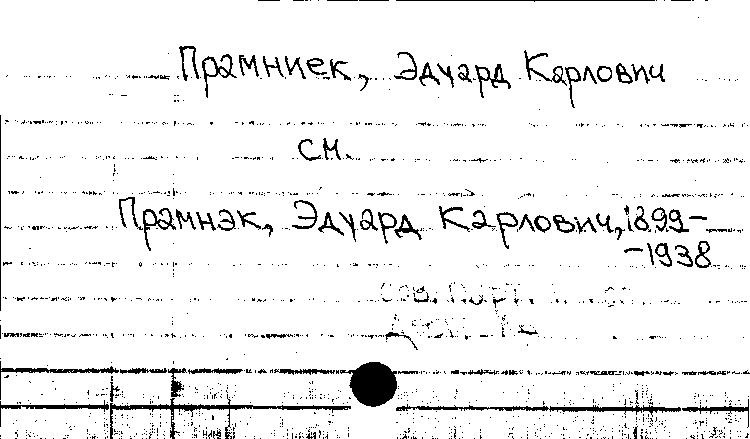 Прамниек, Эдуард Карлович
см.
Прамнэк, Эдуард Карлович, 1899-
-1938
сов. парт.